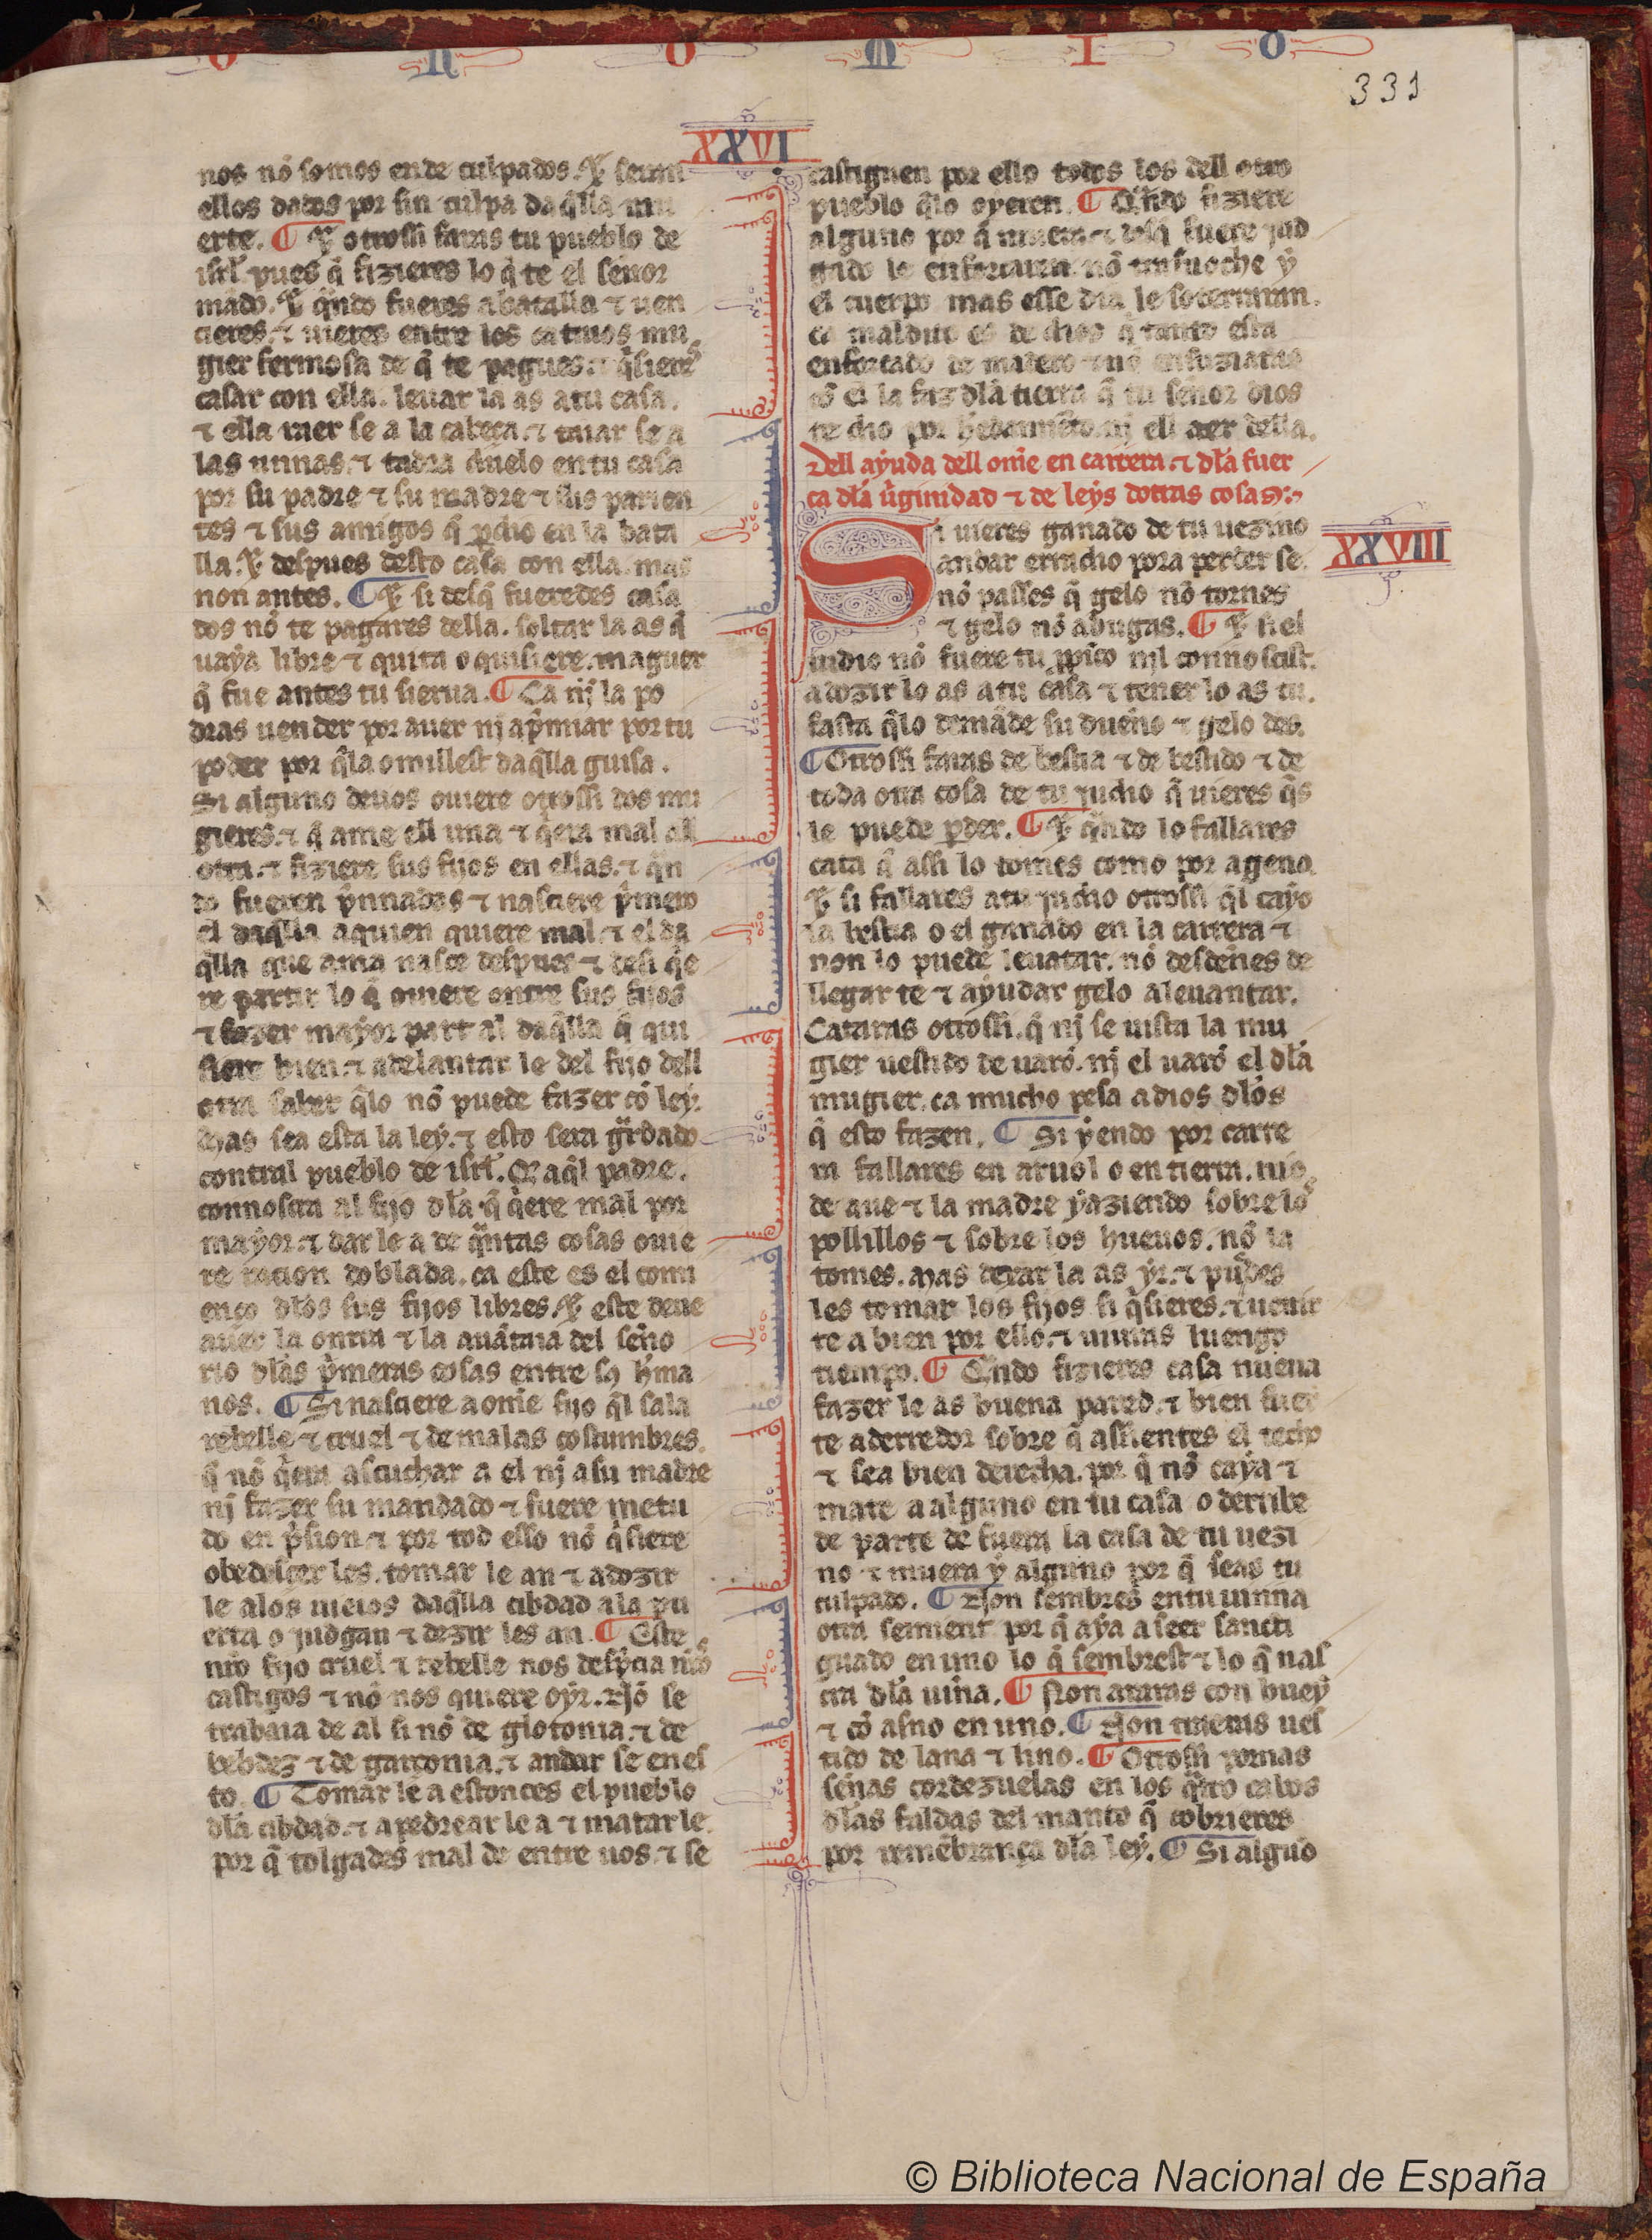 O N O M I O
331
XXVI
nos nõ somos ende culpados. Et seran
ellos dados por sin culpa daq̃lla mu
erte. ¶ Et otrossi faras tu pueblo de
isrl̃ pues q̃ fizieres lo q̃ te el sennor
mãdo. Et q̃ndo fueres a batalla ⁊ uen
cieres. ⁊ uieres entre los catiuos mu
gier fermosa de q̃ te pagues. ⁊ q̃sieres
casar con ella. leuar la as a tu casa.
⁊ ella raer se a la cabeça. ⁊ taiar se a
las unnas. ⁊ tadra duelo en tu casa
por su padre ⁊ su madre ⁊ sus parien
tes ⁊ sus amigos q̃ p̱dio en la bata
lla. Et despues desto casa con ella. mas
non antes. ¶ Et si desq̃ fueredes casa
dos nõ te pagares della. soltar la as q̃
uaya libre ⁊ quita o quisiere. maguer
q̃ fue antes tu sierua. ¶ Ca nĩ la po
dras uender por auer nj ap̃miar por tu
poder por q̃ la omillest daq̃lla guisa.
Si alguno deuos ouiere otrossi dos mu
gieres. ⁊ q̃ ame ell una ⁊ q̃era mal all
otra. ⁊ fiziere sus fijos en ellas. ⁊ q̃n
do fueren p̃nnadas ⁊ nasciere p̃mero
el daq̃lla aquien quiere mal. ⁊ el da
q̃lla que ama nasce despues ⁊ desi q̃e
re partir lo q̃ ouiere entre sus fijos
⁊ fazer mayor part al daq̃lla q̃ qui
siere bien. ⁊ adelantar le del fijo dell
otra saber q̃lo nõ puede fazer cõ ley.
mas sea esta la ley. ⁊ esto sera gũrdado
contral pueblo de isrl̃. Q̃ aq̃l padre.
connosca al fijo dl̃a q̃ q̃ere mal por
mayor. ⁊ dar le a de q̃ntas cosas ouie
re racion doblada. ca este es el comi
enço dl̃os sus fijos libres. Et este deue
auer la ontra ⁊ la auãtaia del sẽno
rio dl̃as p̃meras cosas entre sq h̃ma
nos. ¶ Si nasciere a om̃e fijo q̃l sala
rebelle ⁊ cruel ⁊ de malas costumbres.
q̃ nõ q̃era ascuchar a el nj a su madre
nj fazer su mandado ⁊ fuere metu
do en p̃sion. ⁊ por tod esso nõ q̃siere
obedescer les. tomar le an ⁊ adozir
le alos uieios daq̃lla cibdad ala pu
erta o judgan ⁊ dezir les an. ¶ Este
nr̃o fijo cruel ⁊ rebelle nos desp̃cia nr̃os
castigos ⁊ nõ nos quiere oyr. Nõ se
trabaia de al si nõ de glotonia. ⁊ de
bebdez ⁊ de garçonia. ⁊ andar se en es
to. ¶ Tomar le a estonces el pueblo
dl̃a cibdad. ⁊ apedrear le a ⁊ matar le.
por q̃ tolgades mal de entre uos. ⁊ se
castiguen por ello todos los dell otro
pueblo q̃lo oyeren. ¶ Q̃ndo fiziere
alguno por q̃ muera ⁊ desq̃ fuere jud
gado le enforcaren. nõ trasnoche y
el cuerpo mas esse dia le soterraran.
ca maldito es de dios q̃ tanto esta
enforcado de madero ⁊ nõ ensuziaras
el la faz dl̃a tierra q̃ tu sennor dios
te dio por
Dell ayuda dell om̃e en carrera. ⁊ dl̃a fuer
ca dl̃a ũginidad ⁊ de leys dotras cosas.
XXVIII
Si uieres ganado de tu uezino
andar erradio pora perder se.
nõ passes q̃ gelo nõ tornes
⁊ gelo nõ adugas. ¶ Et si el
iudio nõ fuere tu p̱pĩco njl connoscist.
adozir lo as a tu casa ⁊ tener lo as tu.
fasta q̃lo demãde su dueño ⁊ gelo des.
¶ Otrossi faras de bestia ⁊ de bestido ⁊ de
toda otra cosa de tu judio q̃ uieres q̃s
le puede p̱der. ¶ Et q̃ndo lo fallares
cata q̃ assi lo tomes como por ageno.
Et si fallares a tu judio otrossi q̃l cayo
la bestia o el ganado en la carrera ⁊
non lo puede leuãtar. nõ desdennes de
llegar te ⁊ ayudar gelo a leuantar.
Cataras otrossi. q̃ nj se uista la mu
gier uestido de uarõ. nj el uarõ el dl̃a
mugier. ca mucho pesa a dios dl̃os
q̃ esto fazen. ¶ Si yendo por carre
ra fallares en aruol o en tierra. nio
de aue ⁊ la madre yaziendo sobre los
pollillos ⁊ sobre los hueuos. nõ la
tomes. mas dexar la as yr. ⁊ puedes
les tomar los fijos si q̃sieres. ⁊ uenir
te a bien por ello. ⁊ uiuras luengo
tiempo. ¶ Q̃ndo fizieres casa nueua
fazer le as buena pared. ⁊ bien fuer
te aderredor sobre q̃ assientes el techo
⁊ sea bien derecha. por q̃ nõ caya ⁊
mate a alguno en tu casa o derribe
de parte de fuera la casa de tu uezi
no ⁊ muera y alguno por q̃ seas tu
culpado. ¶ Non sembres en tu uinna
otra semient por q̃ aya a seer sancti
guado en uno lo q̃ sembrest ⁊ lo q̃ nas
cra dl̃a uiña. ¶ Non araras con buey
⁊ cõ asno en uno. ¶ Non trayras ues
tido de lana ⁊ lino. ¶ Otrossi pornas
señas cordezuelas en los q̃tro cabos
dl̃as faldas del manto q̃ cobrieres
por remẽbrança dl̃a ley. ¶ Si alguo
© Biblioteca Nacional de España